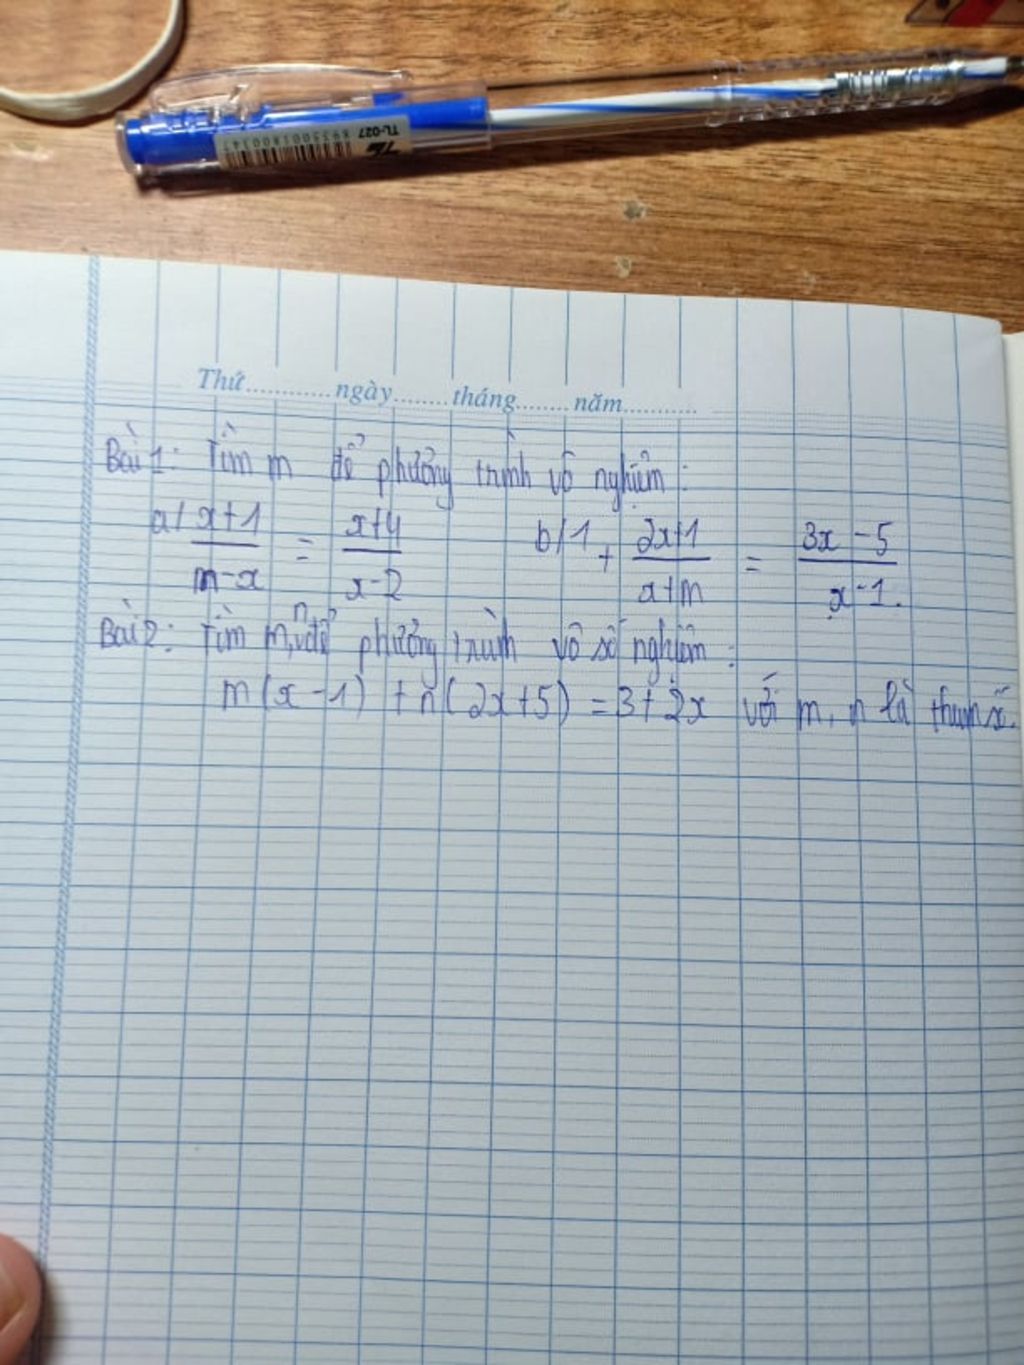 TL-027
8935001800347
Thứ............ngày........tháng.......năm...........
Bài 1: Tìm m để phường trình vô nghiệm:
a/ x+1/m-x = x+4/x-2 b/ 1 + 2x+1/x+m = 3x-5/x-1.
Bài 2: Tìm m, n để phường trình vô số nghiệm:
m(x-1) + n(2x+5) = 3+2x với m, n là tham số.